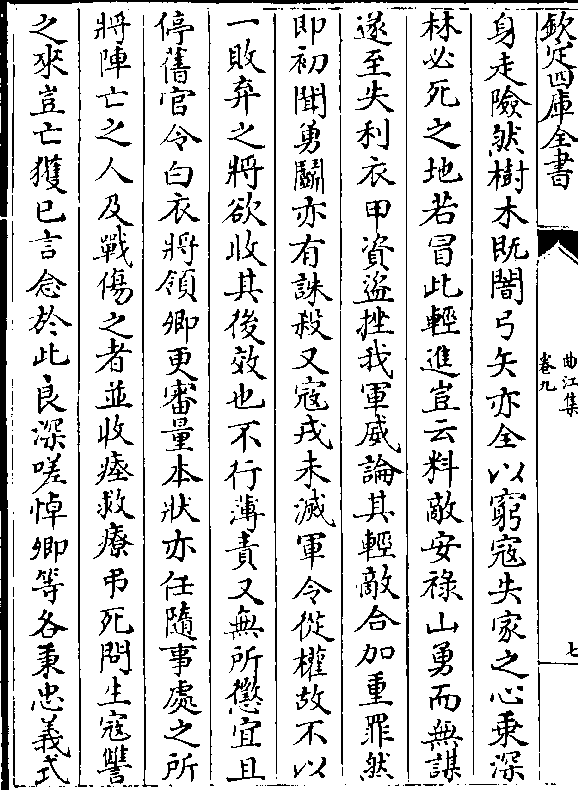 欽定四庫全書
曲江集
卷九
七
身走險然樹木既闇弓矢亦全以窮寇失家之心乗深
林必死之地若冒此輕進豈云料敵安祿山勇而無謀
遂至失利衣甲資盗挫我軍威論其輕敵合加重罪然
即初聞勇鬭亦有誅殺又寇戎未滅軍令從權故不以
一敗弃之將欲收其後效也不行薄責又無所懲宜且
停舊官令白衣將領卿更審量本狀亦任隨事處之所
將陣亡之人及戰傷之者並收瘞救療弔死問生寇讐
之來豈亡獲已言念於此良深嗟悼卿等各秉忠義式